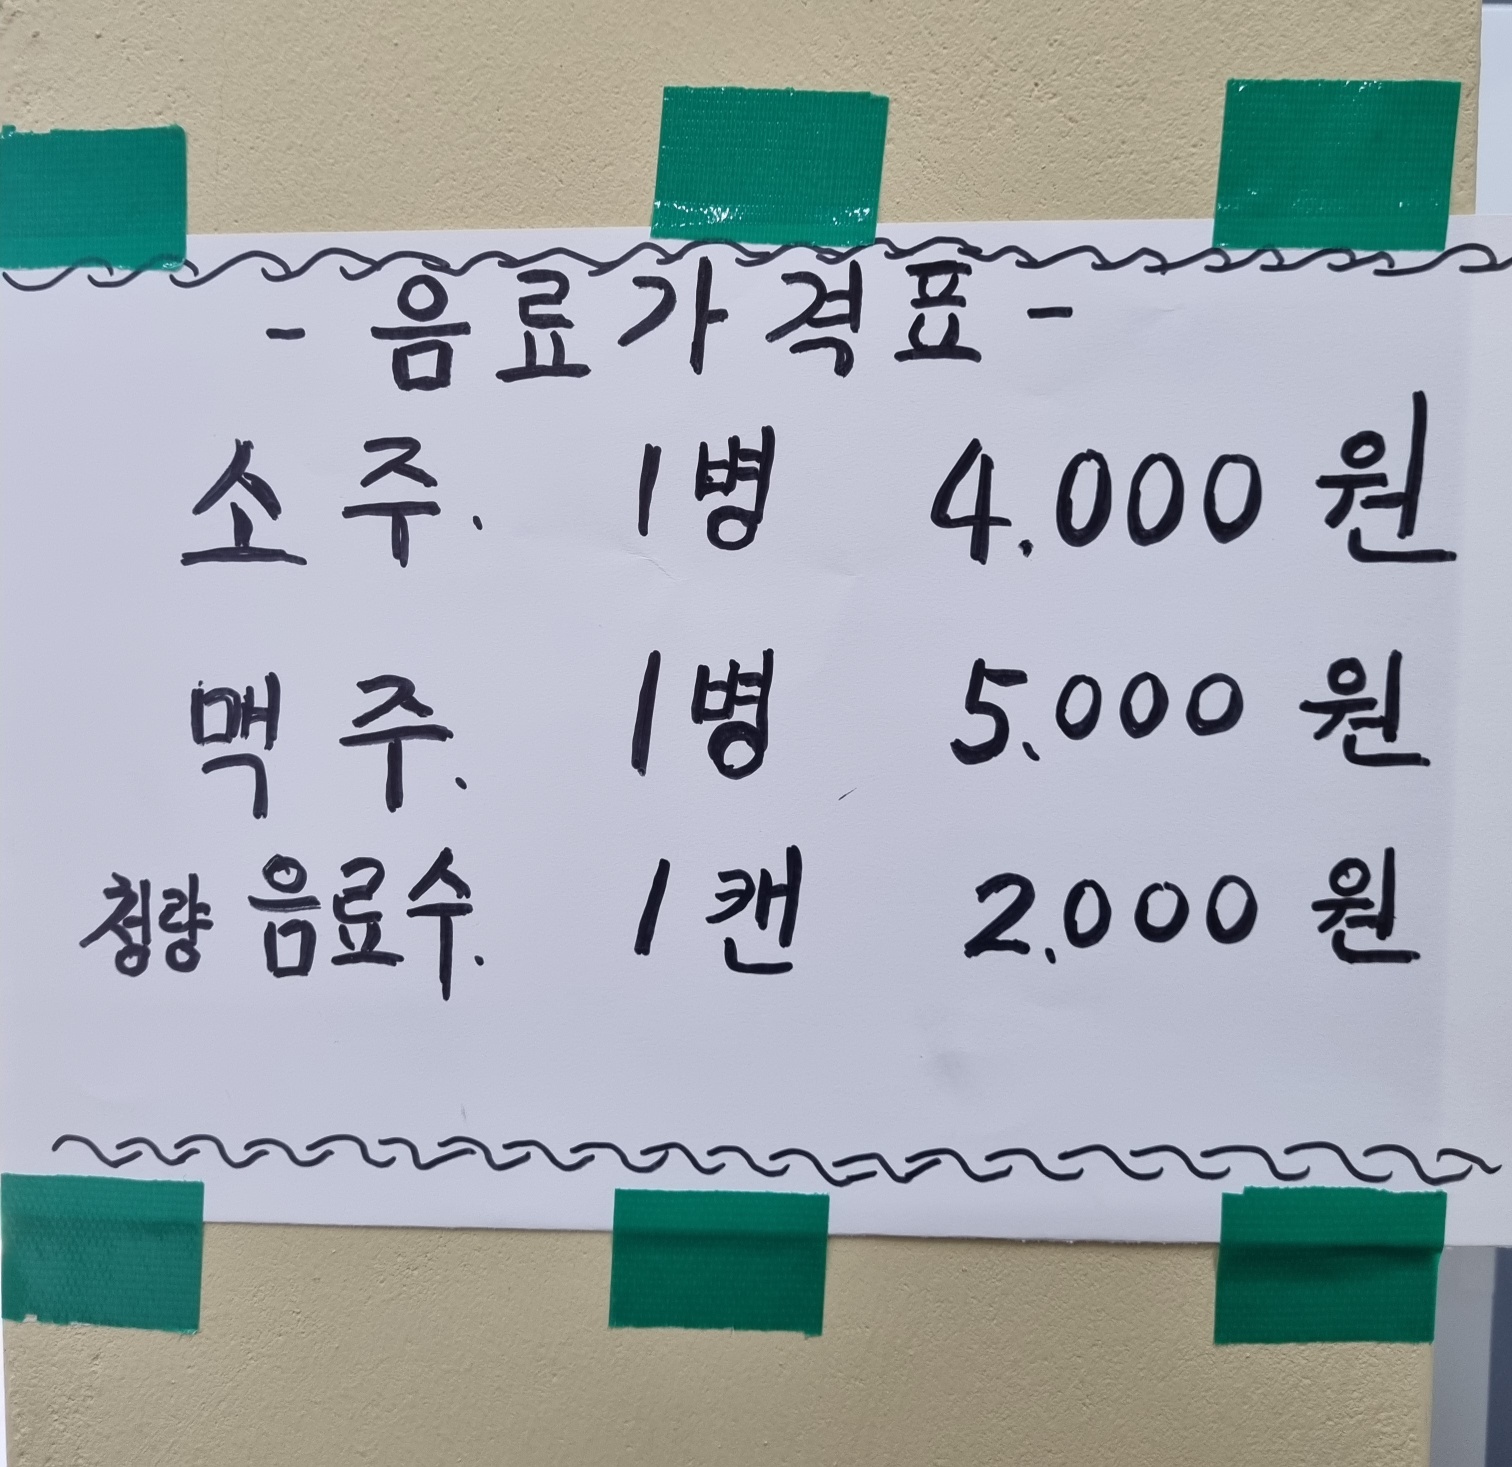 - 음료가격표 -
소주. 1병 4.000원
맥주. 1병 5.000원
청량음료수. 1캔 2.000원